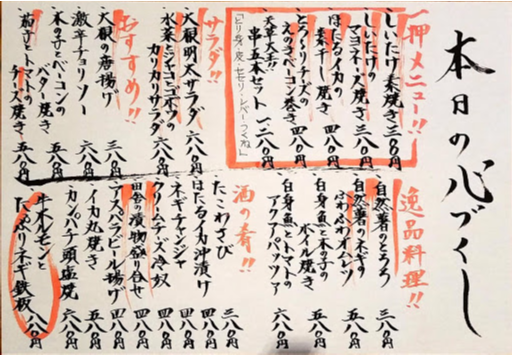 本日の心づくし
一押メニュー!!
・しいたけ素焼き 三八〇円
・しいたけの
マヨネーズ焼き 三八〇円
・ほたるイカの
素干し焼き 四八〇円
・とろ〜りチーズの
えのきベーコン巻き 四八〇円
・天草大王!!
串五本セット 一、二八〇円
サラダ!!
・大根明太サラダ 六八〇円
・水菜とジャコゴボウの
カリカリサラダ 六八〇円
おすすめ!!
・大根の唐揚げ 三八〇円
・激辛チョリソー 六八〇円
・木の子とベーコンの
バター焼き 五八〇円
・茄子とトマトの
チーズ焼き 五八〇円
逸品料理!!
・自然薯のとろろ 三八〇円
・自然薯のネギの
ふわふわオムレツ 五八〇円
・白身魚と木の子の
ホイル焼き 五八〇円
・白身魚とトマトの
アクアパッツァ 六八〇円
酒の肴!!
・たこわさび 三八〇円
・ほたるイカ沖漬け 四八〇円
・ネギチャンジャ 四八〇円
・クリームチーズ冷奴 四八〇円
・田舎の漬物盛り合せ 四八〇円
・アスパラビール揚げ 四八〇円
・イカ丸焼き 五八〇円
・カンパチ頭塩焼 六八〇円
・牛ホルモンと
たっぷりネギ鉄板 八八〇円